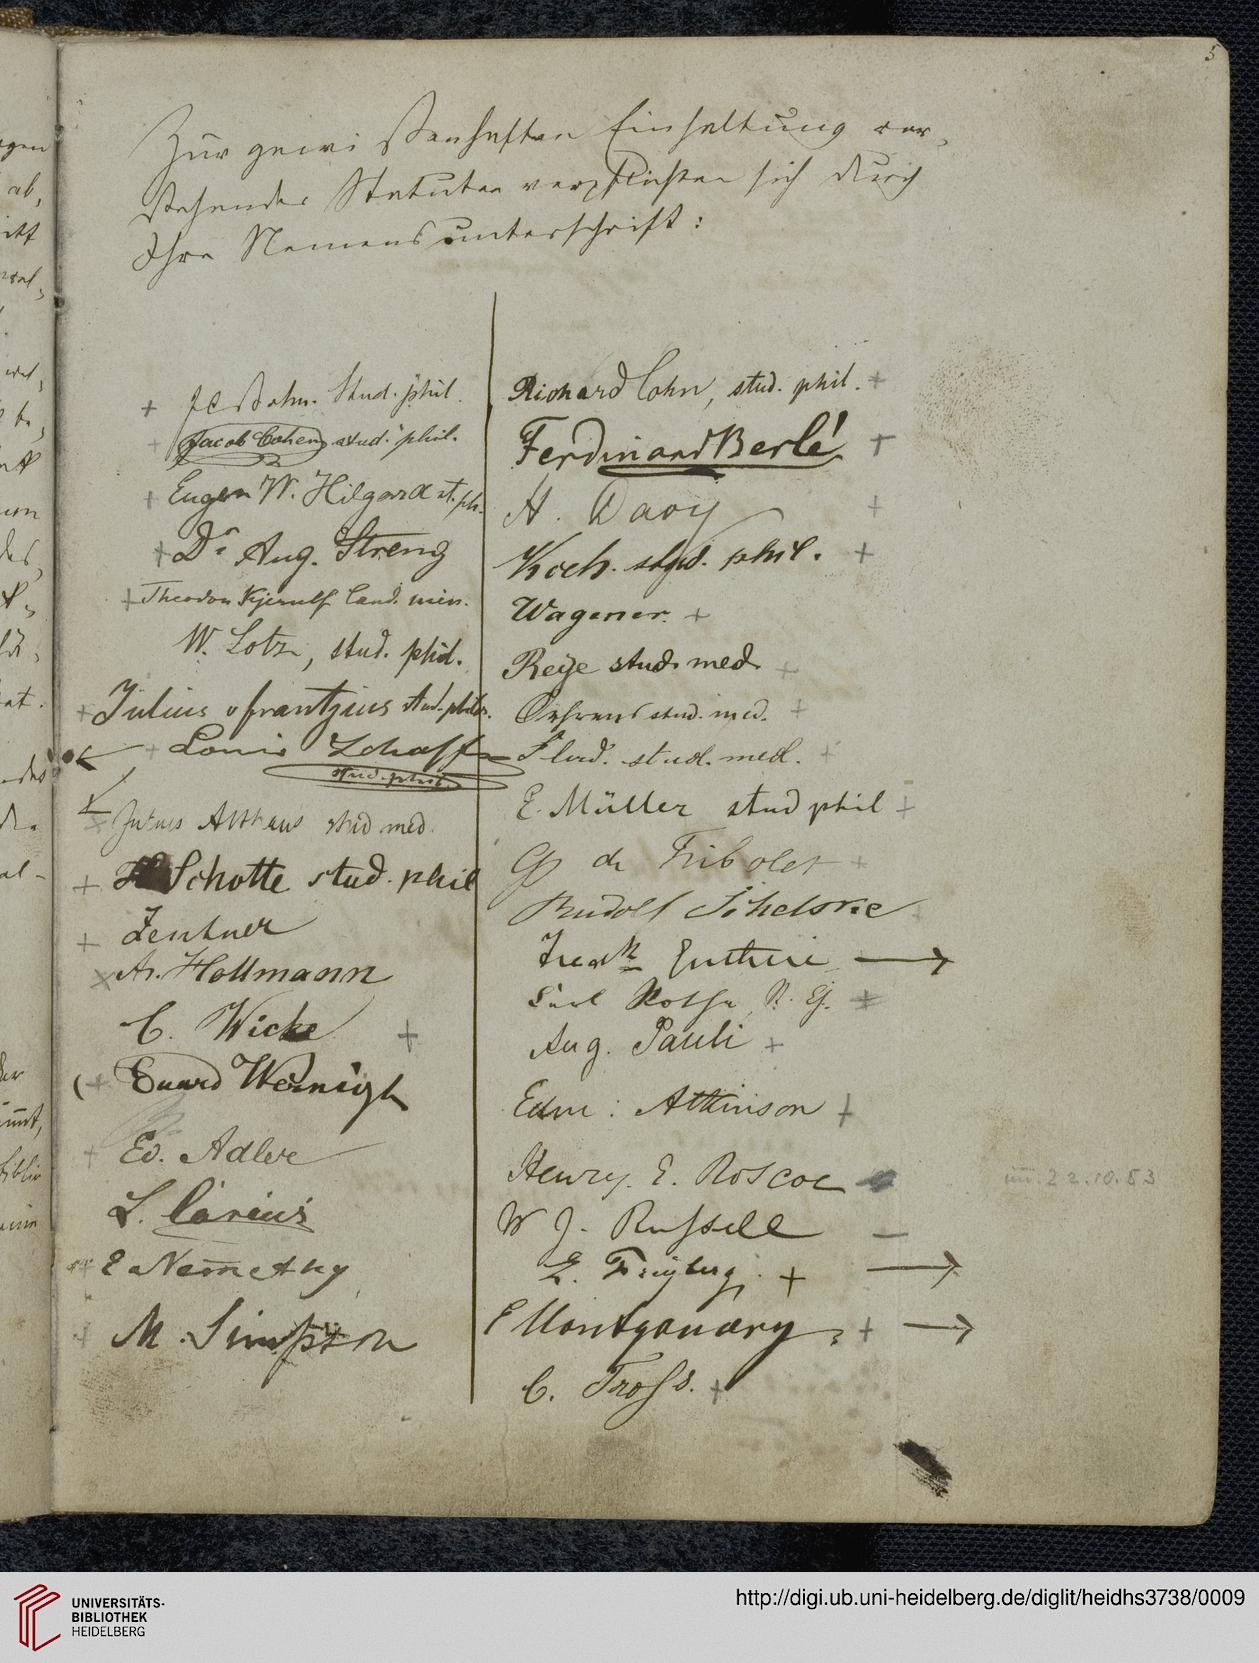 5
Zur gewissenhaften Einhaltung vor-
stehender Statuten verpflichten sich durch
Ihre Namensunterschrift:
stud. phil.
Jacob Cohen stud. phil.
Eugen W. Hilgard st. ph.
Dr Aug. Streng
Theodor Kjerulf Cand. min.
W. Lotz, stud. phil.
Julius v frantzius stud. philos.
Louis Schaff
stud. phil.
Julius Althaus stud med.
Schotte stud. phil
Zentner
Hollmann
C. Wicke
Ed. Adler
L. Carius
M. Simpson
Richard Cohn, stud. phil.
Ferdinand Berlé
H. Davy
Koch. stud. phil.
Wagener.
Reye stud. med.
stud. med.
stud. med.
E. Müller stud phil
de Tribolet
Rudolf Schelske
Guthrie
Carl
Aug. Pauli
Edm: Atkinson
Henry. E. Roscoe
22.10.53
W J. Russell
Montgomery
C. Tross.
UNIVERSITÄTS-
BIBLIOTHEK
HEIDELBERG
http://digi.ub.uni-heidelberg.de/diglit/heidhs3738/0009